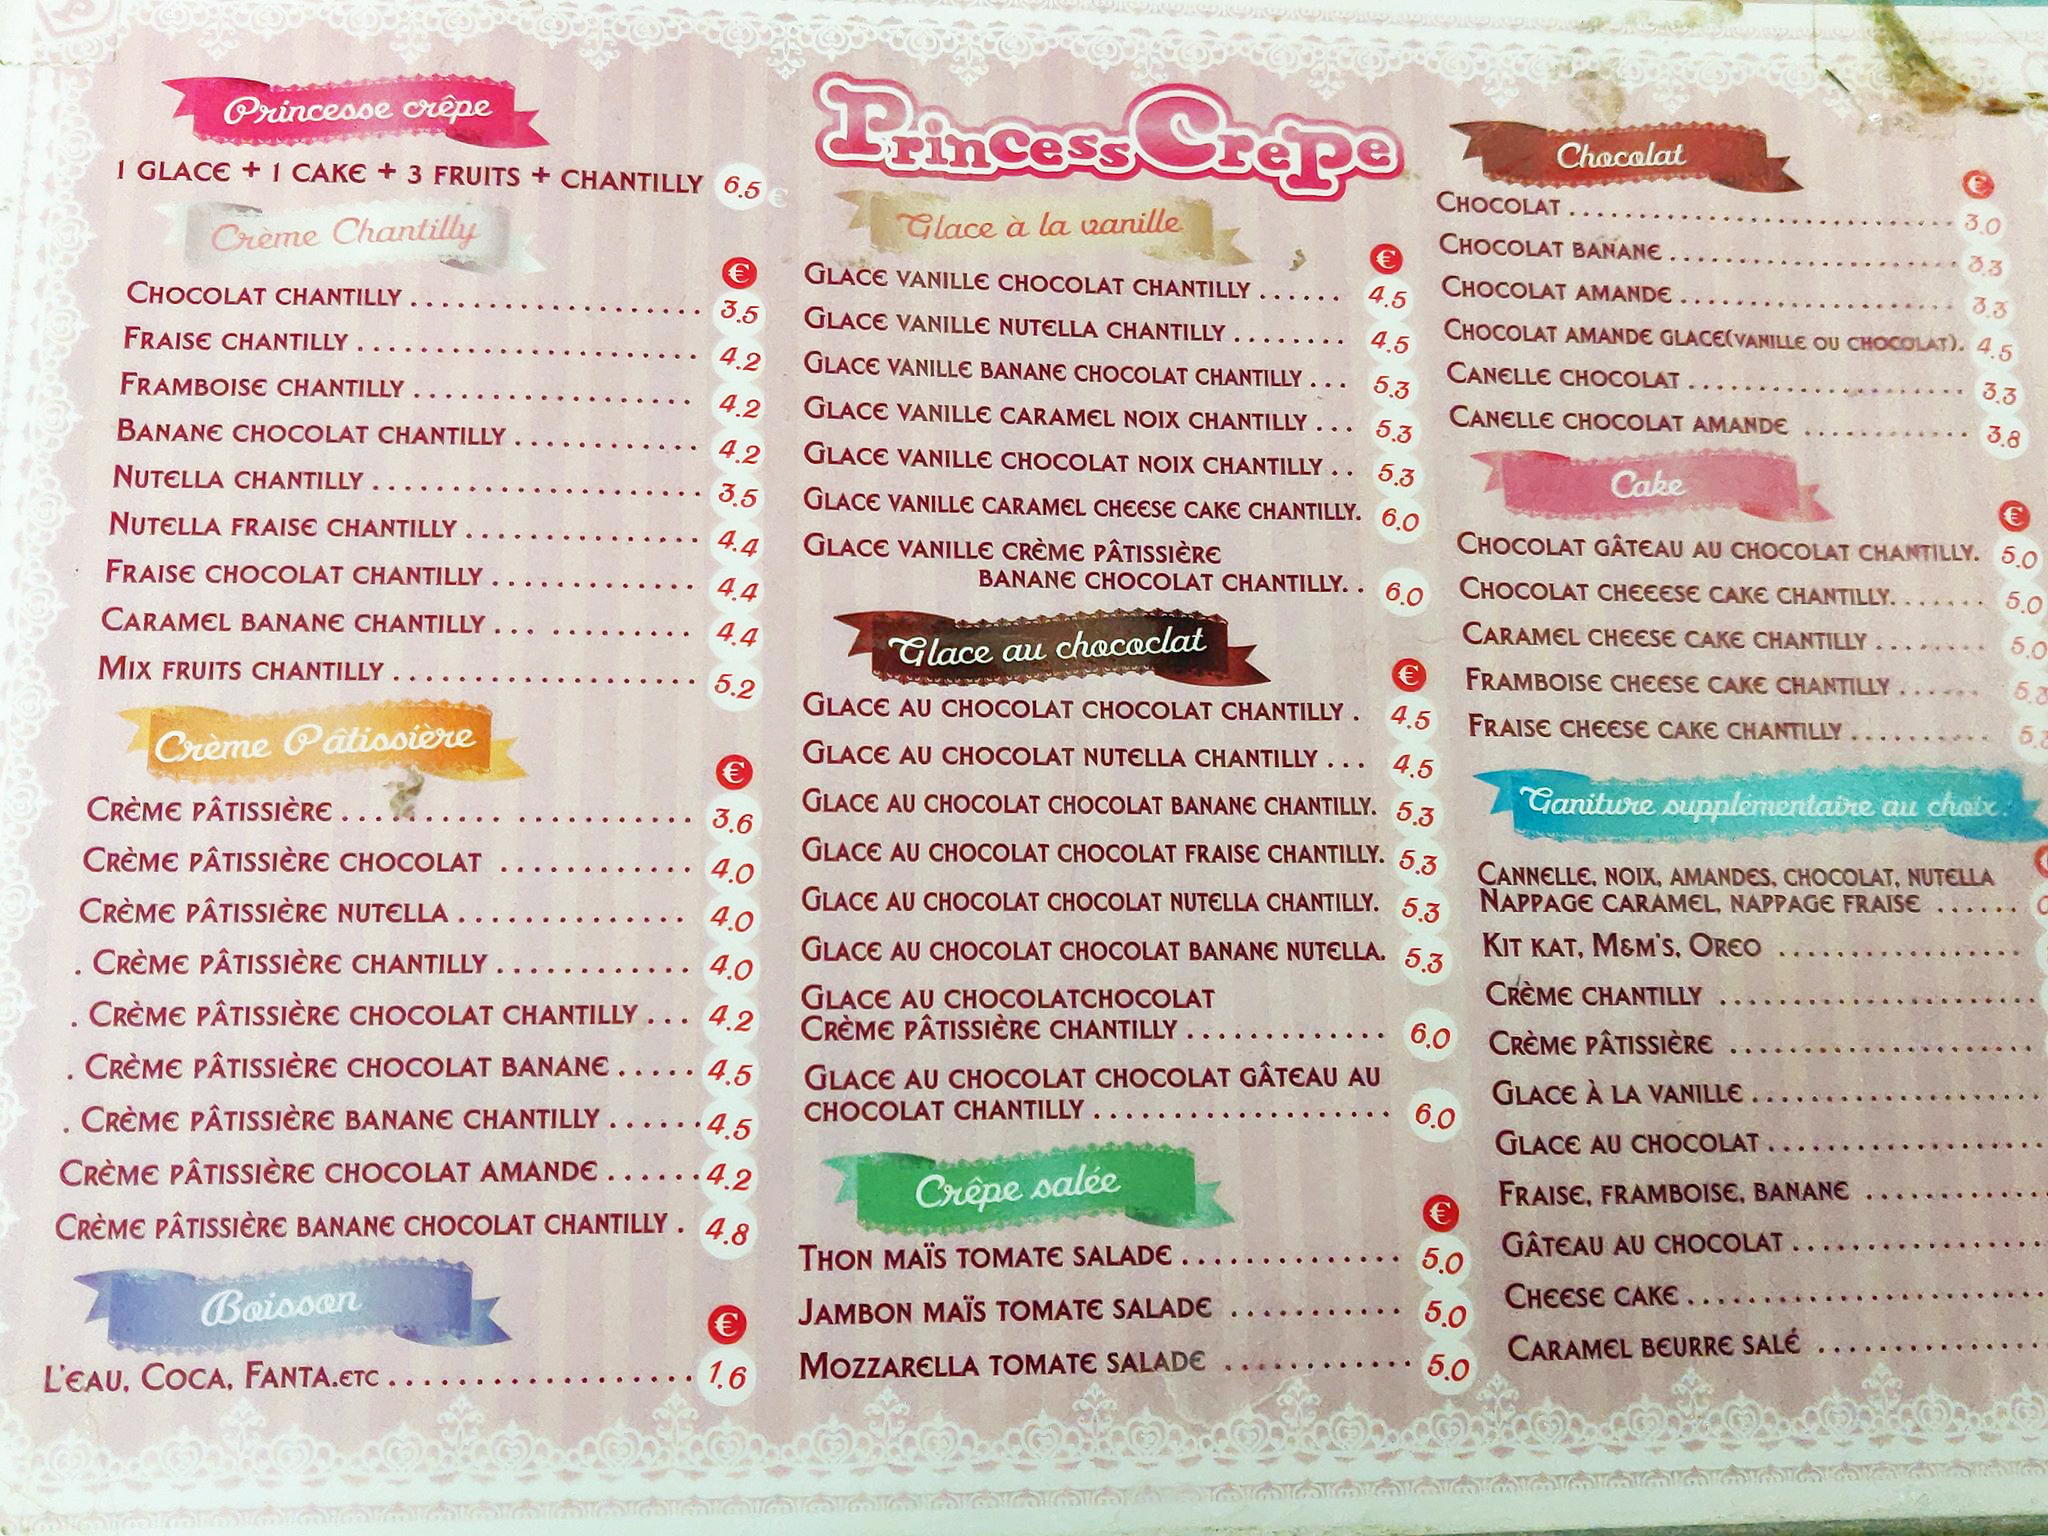 Princesse crêpe
1 GLACE + 1 CAKE + 3 FRUITS + CHANTILLY 6.5 €
Crème Chantilly
€
CHOCOLAT CHANTILLY 3.5
FRAISE CHANTILLY 4.2
FRAMBOISE CHANTILLY 4.2
BANANE CHOCOLAT CHANTILLY 4.2
NUTELLA CHANTILLY 3.5
NUTELLA FRAISE CHANTILLY 4.4
FRAISE CHOCOLAT CHANTILLY 4.4
CARAMEL BANANE CHANTILLY 4.4
MIX FRUITS CHANTILLY 5.2
Crème Pâtissière
€
CRÈME PÂTISSIÈRE 3.6
CRÈME PÂTISSIÈRE CHOCOLAT 4.0
CRÈME PÂTISSIÈRE NUTELLA 4.0
. CRÈME PÂTISSIÈRE CHANTILLY 4.0
. CRÈME PÂTISSIÈRE CHOCOLAT CHANTILLY 4.2
. CRÈME PÂTISSIÈRE CHOCOLAT BANANE 4.5
. CRÈME PÂTISSIÈRE BANANE CHANTILLY 4.5
CRÈME PÂTISSIÈRE CHOCOLAT AMANDE 4.2
CRÈME PÂTISSIÈRE BANANE CHOCOLAT CHANTILLY 4.8
Boisson
€
L'EAU, COCA, FANTA.ETC 1.6
Princess Crepe
Glace à la vanille
€
GLACE VANILLE CHOCOLAT CHANTILLY 4.5
GLACE VANILLE NUTELLA CHANTILLY 4.5
GLACE VANILLE BANANE CHOCOLAT CHANTILLY 5.3
GLACE VANILLE CARAMEL NOIX CHANTILLY 5.3
GLACE VANILLE CHOCOLAT NOIX CHANTILLY 5.3
GLACE VANILLE CARAMEL CHEESE CAKE CHANTILLY. 6.0
GLACE VANILLE CRÈME PÂTISSIÈRE
BANANE CHOCOLAT CHANTILLY 6.0
Glace au chococlat
€
GLACE AU CHOCOLAT CHOCOLAT CHANTILLY 4.5
GLACE AU CHOCOLAT NUTELLA CHANTILLY 4.5
GLACE AU CHOCOLAT CHOCOLAT BANANE CHANTILLY. 5.3
GLACE AU CHOCOLAT CHOCOLAT FRAISE CHANTILLY. 5.3
GLACE AU CHOCOLAT CHOCOLAT NUTELLA CHANTILLY. 5.3
GLACE AU CHOCOLAT CHOCOLAT BANANE NUTELLA. 5.3
GLACE AU CHOCOLATCHOCOLAT
CRÈME PÂTISSIÈRE CHANTILLY 6.0
GLACE AU CHOCOLAT CHOCOLAT GÂTEAU AU
CHOCOLAT CHANTILLY 6.0
Crêpe salée
€
THON MAÏS TOMATE SALADE 5.0
JAMBON MAÏS TOMATE SALADE 5.0
MOZZARELLA TOMATE SALADE 5.0
Chocolat
€
CHOCOLAT 3.0
CHOCOLAT BANANE 3.3
CHOCOLAT AMANDE 3.3
CHOCOLAT AMANDE GLACE(VANILLE OU CHOCOLAT). 4.5
CANELLE CHOCOLAT 3.3
CANELLE CHOCOLAT AMANDE 3.8
Cake
€
CHOCOLAT GÂTEAU AU CHOCOLAT CHANTILLY. 5.0
CHOCOLAT CHEEESE CAKE CHANTILLY 5.0
CARAMEL CHEESE CAKE CHANTILLY 5.0
FRAMBOISE CHEESE CAKE CHANTILLY 5.3
FRAISE CHEESE CAKE CHANTILLY
Ganiture supplémentaire au choix.
CANNELLE, NOIX, AMANDES, CHOCOLAT, NUTELLA
NAPPAGE CARAMEL, NAPPAGE FRAISE
KIT KAT, M&M'S, OREO
CRÈME CHANTILLY
CRÈME PÂTISSIÈRE
GLACE À LA VANILLE
GLACE AU CHOCOLAT
FRAISE, FRAMBOISE, BANANE
GÂTEAU AU CHOCOLAT
CHEESE CAKE
CARAMEL BEURRE SALÉ